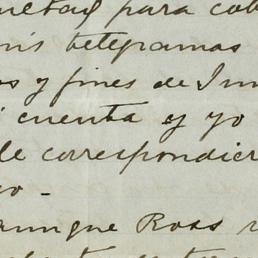 para cob
mis telegramas
os y fines de Inm
i cuenta y yo
le correspondier
yo -
aunque Ross